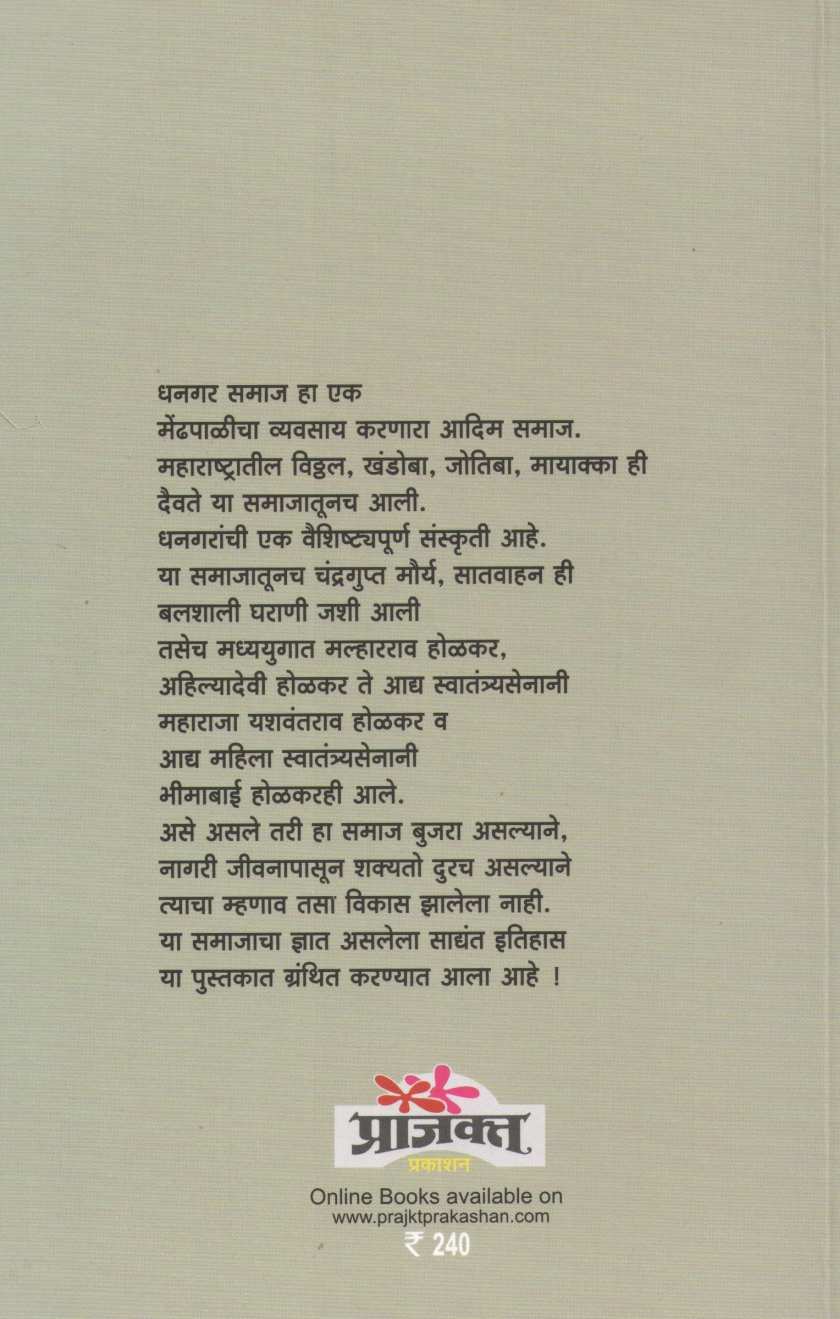 धनगर समाज हा एक
मेंढपाळीचा व्यवसाय करणारा आदिम समाज.
महाराष्ट्रातील विठ्ठल, खंडोबा, जोतिबा, मायाक्का ही
दैवते या समाजातूनच आली.
धनगरांची एक वैशिष्ट्यपूर्ण संस्कृती आहे.
या समाजातूनच चंद्रगुप्त मौर्य, सातवाहन ही
बलशाली घराणी जशी आली
तसेच मध्ययुगात मल्हारराव होळकर,
अहिल्यादेवी होळकर ते आद्य स्वातंत्र्यसेनानी
महाराजा यशवंतराव होळकर व
आद्य महिला स्वातंत्र्यसेनानी
भीमाबाई होळकरही आले.
असे असले तरी हा समाज बुजरा असल्याने,
नागरी जीवनापासून शक्यतो दुरच असल्याने
त्याचा म्हणाव तसा विकास झालेला नाही.
या समाजाचा ज्ञात असलेला साद्यंत इतिहास
या पुस्तकात ग्रंथित करण्यात आला आहे !
प्राजक्त
प्रकाशन
Online Books available on
www.prajktprakashan.com
₹ 240